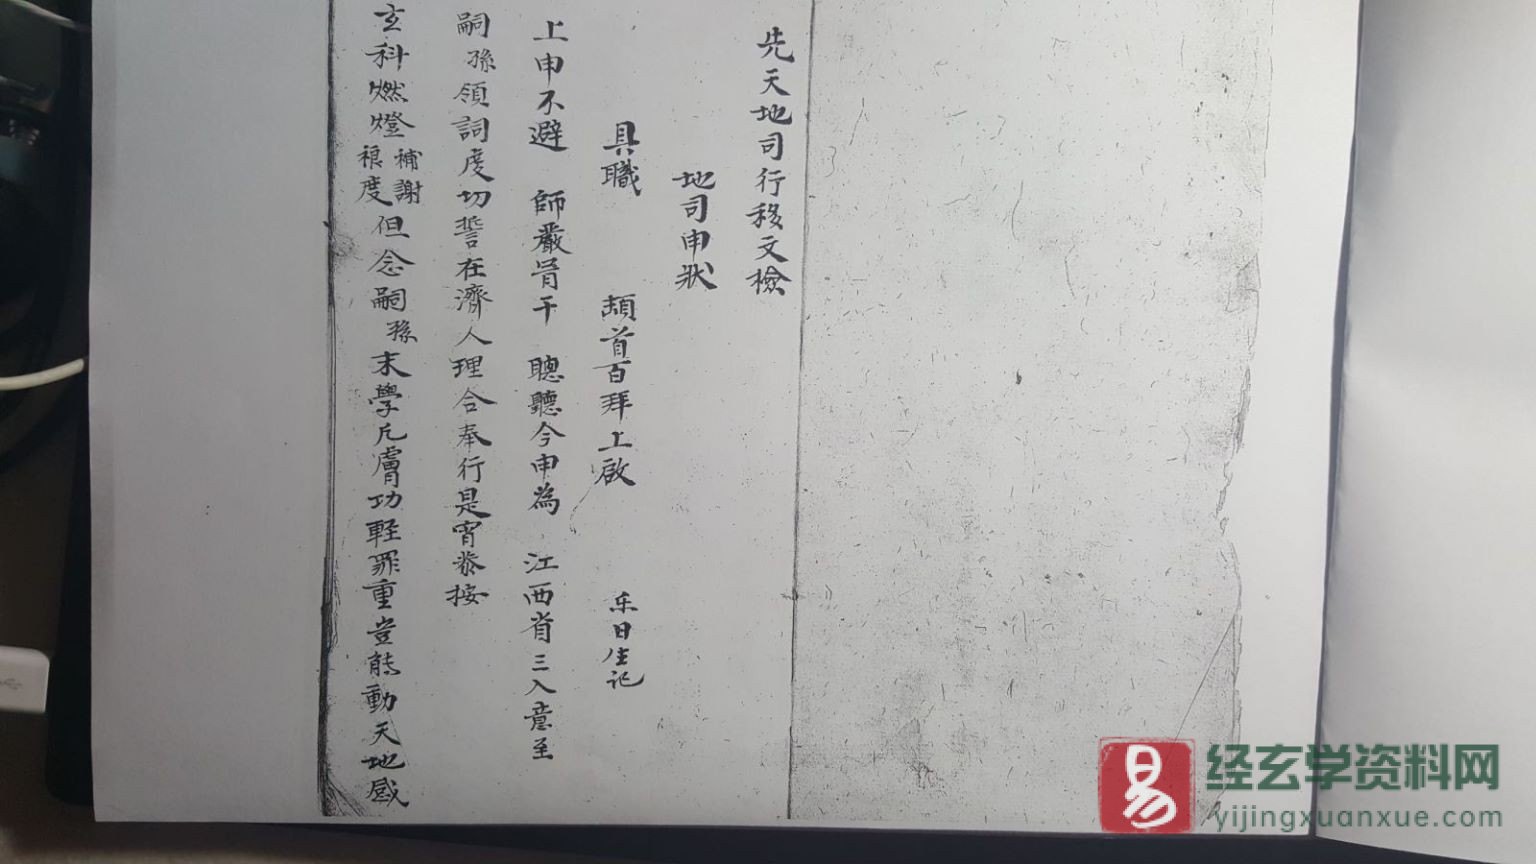 先天地司行移文檢
地司申狀
具職 頓首百拜上啟 乐日生记
上申不避 師嚴冒干 聰聽今申為 江西省三入意至
嗣孫領詞虔切誓在濟人理合奉行是宵恭按
玄科燃燈補謝禳度但念嗣孫末學凡膚功輕罪重豈能動天地感
易
经玄学资料网
yijingxuanxue.com